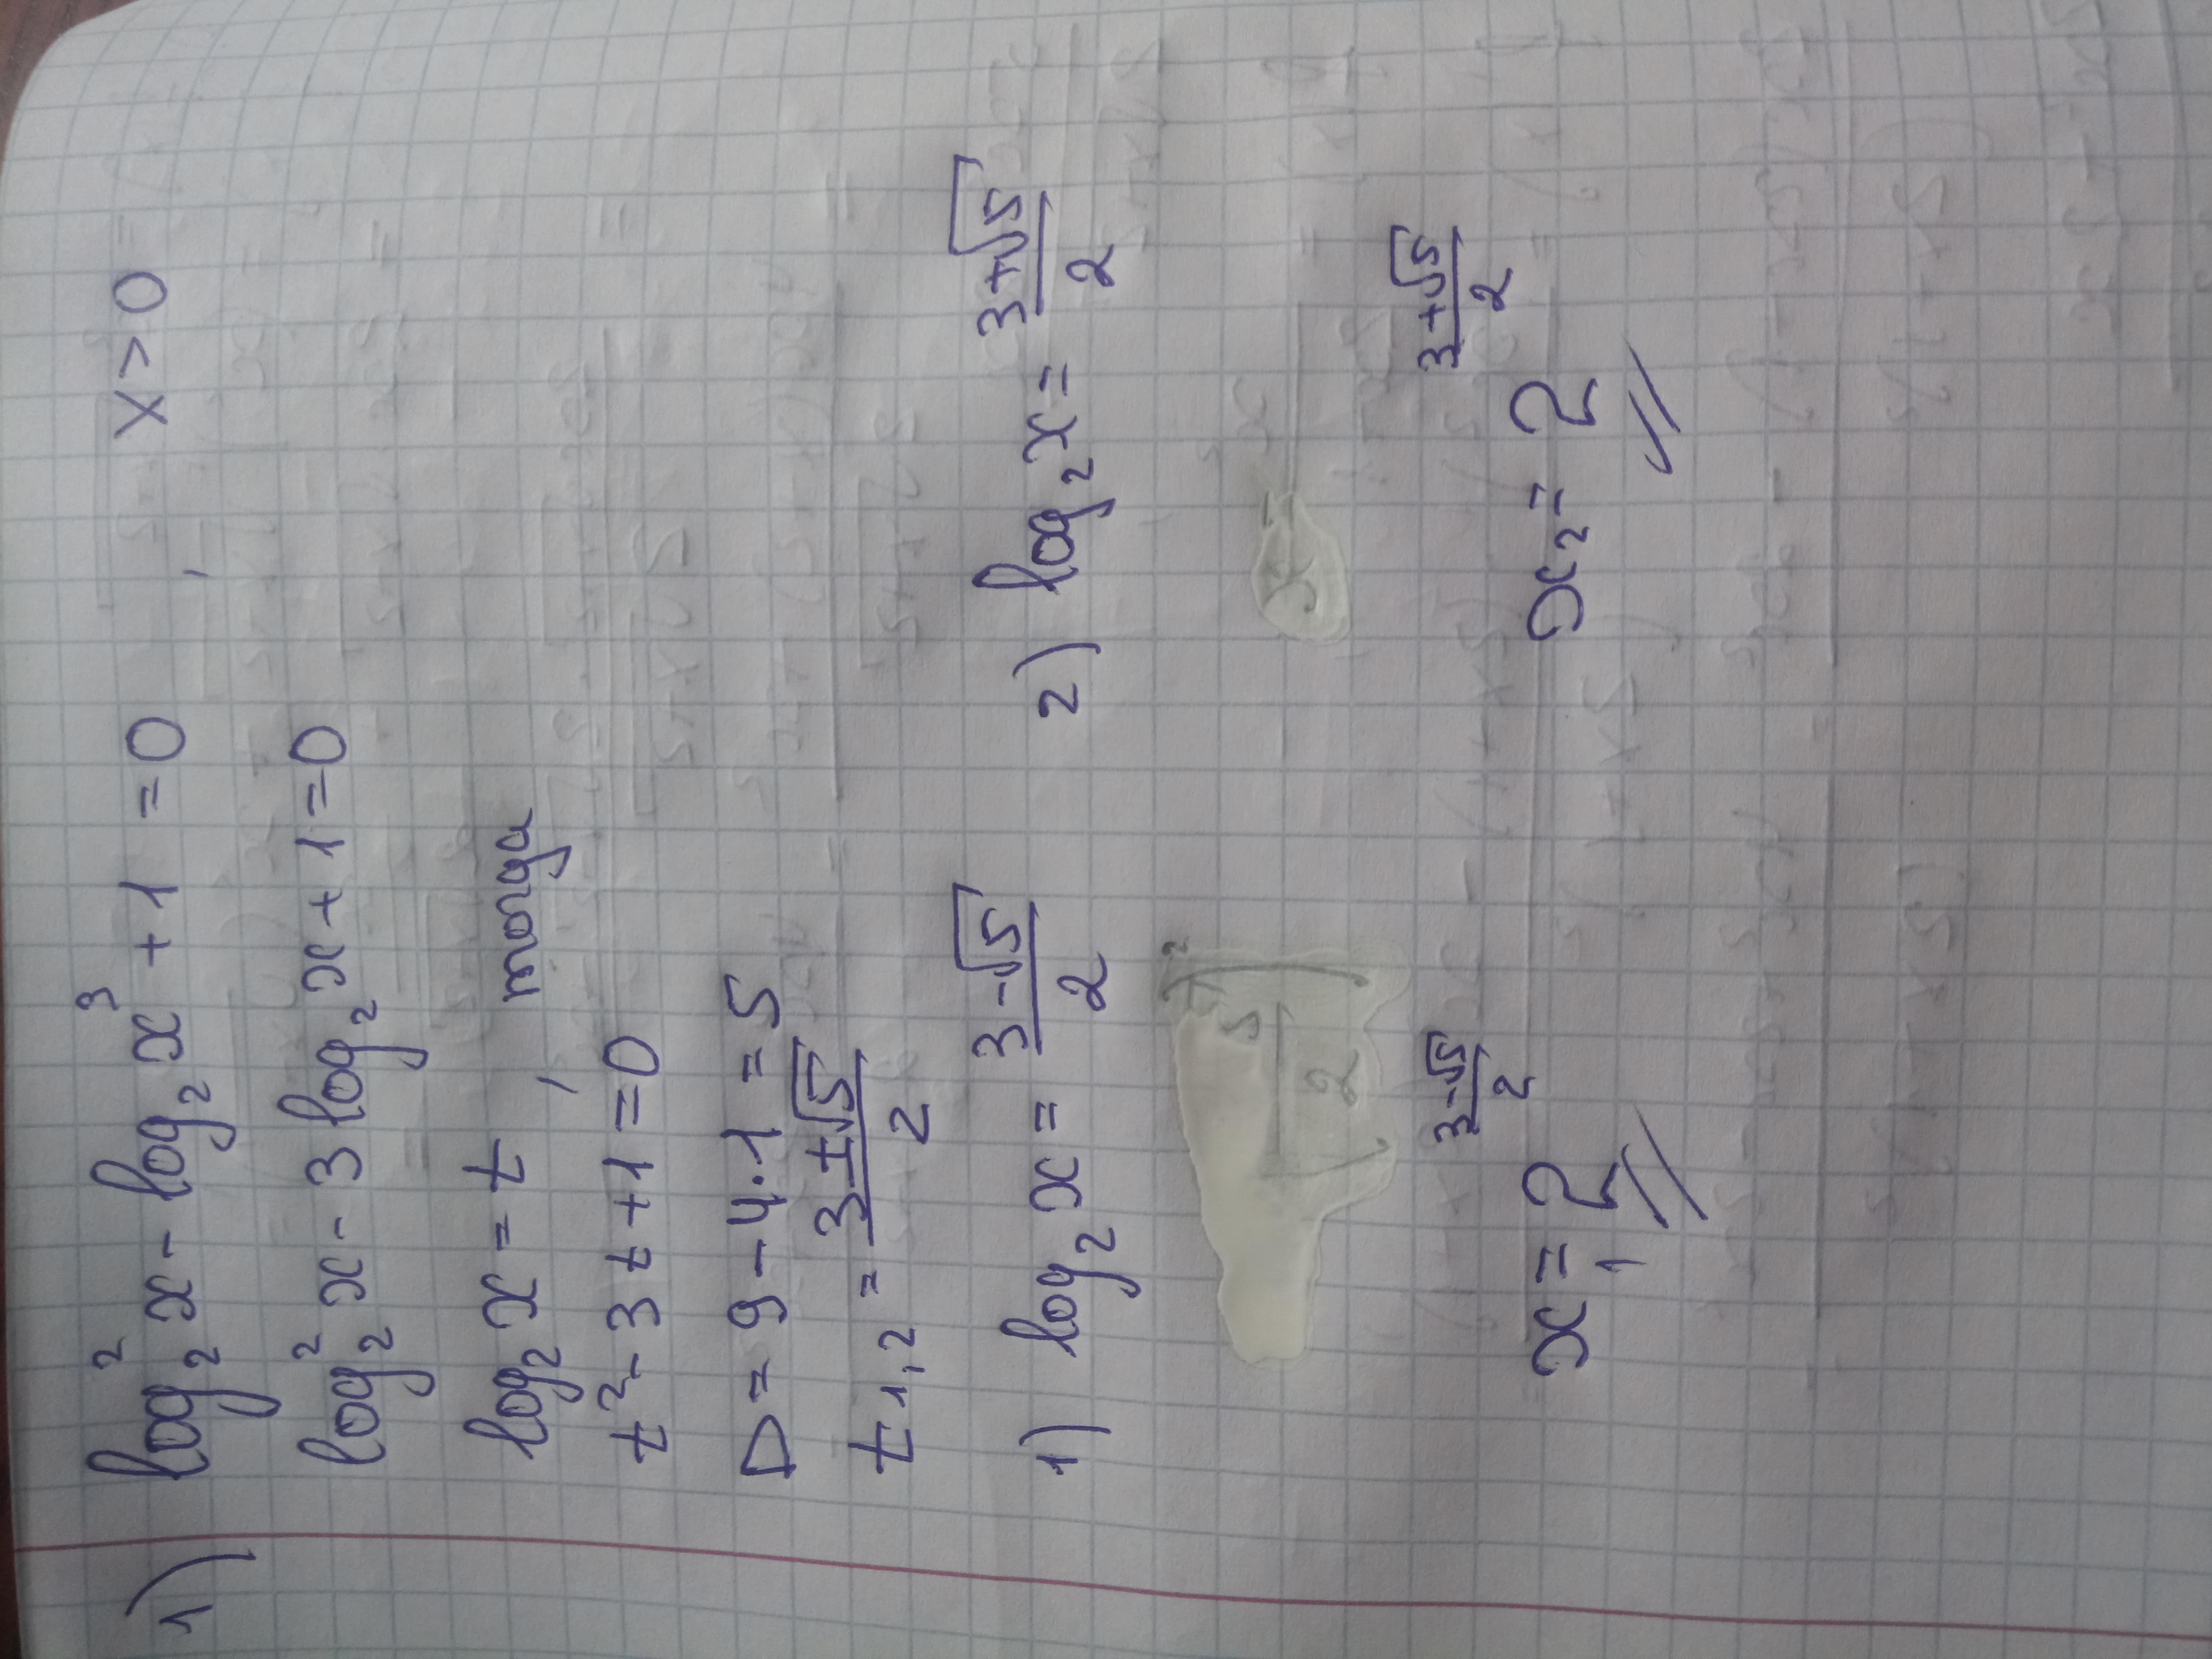 1) log₂²x - log₂x³ + 1 = 0 x > 0
log₂²x - 3log₂x + 1 = 0
log₂x = t, тогда
t² - 3t + 1 = 0
D = 9 - 4·1 = 5
t₁,₂ = (3±√5)/2
1) log₂x = (3-√5)/2 2) log₂x = (3+√5)/2
x₁ = 2^((3-√5)/2) x₂ = 2^((3+√5)/2)